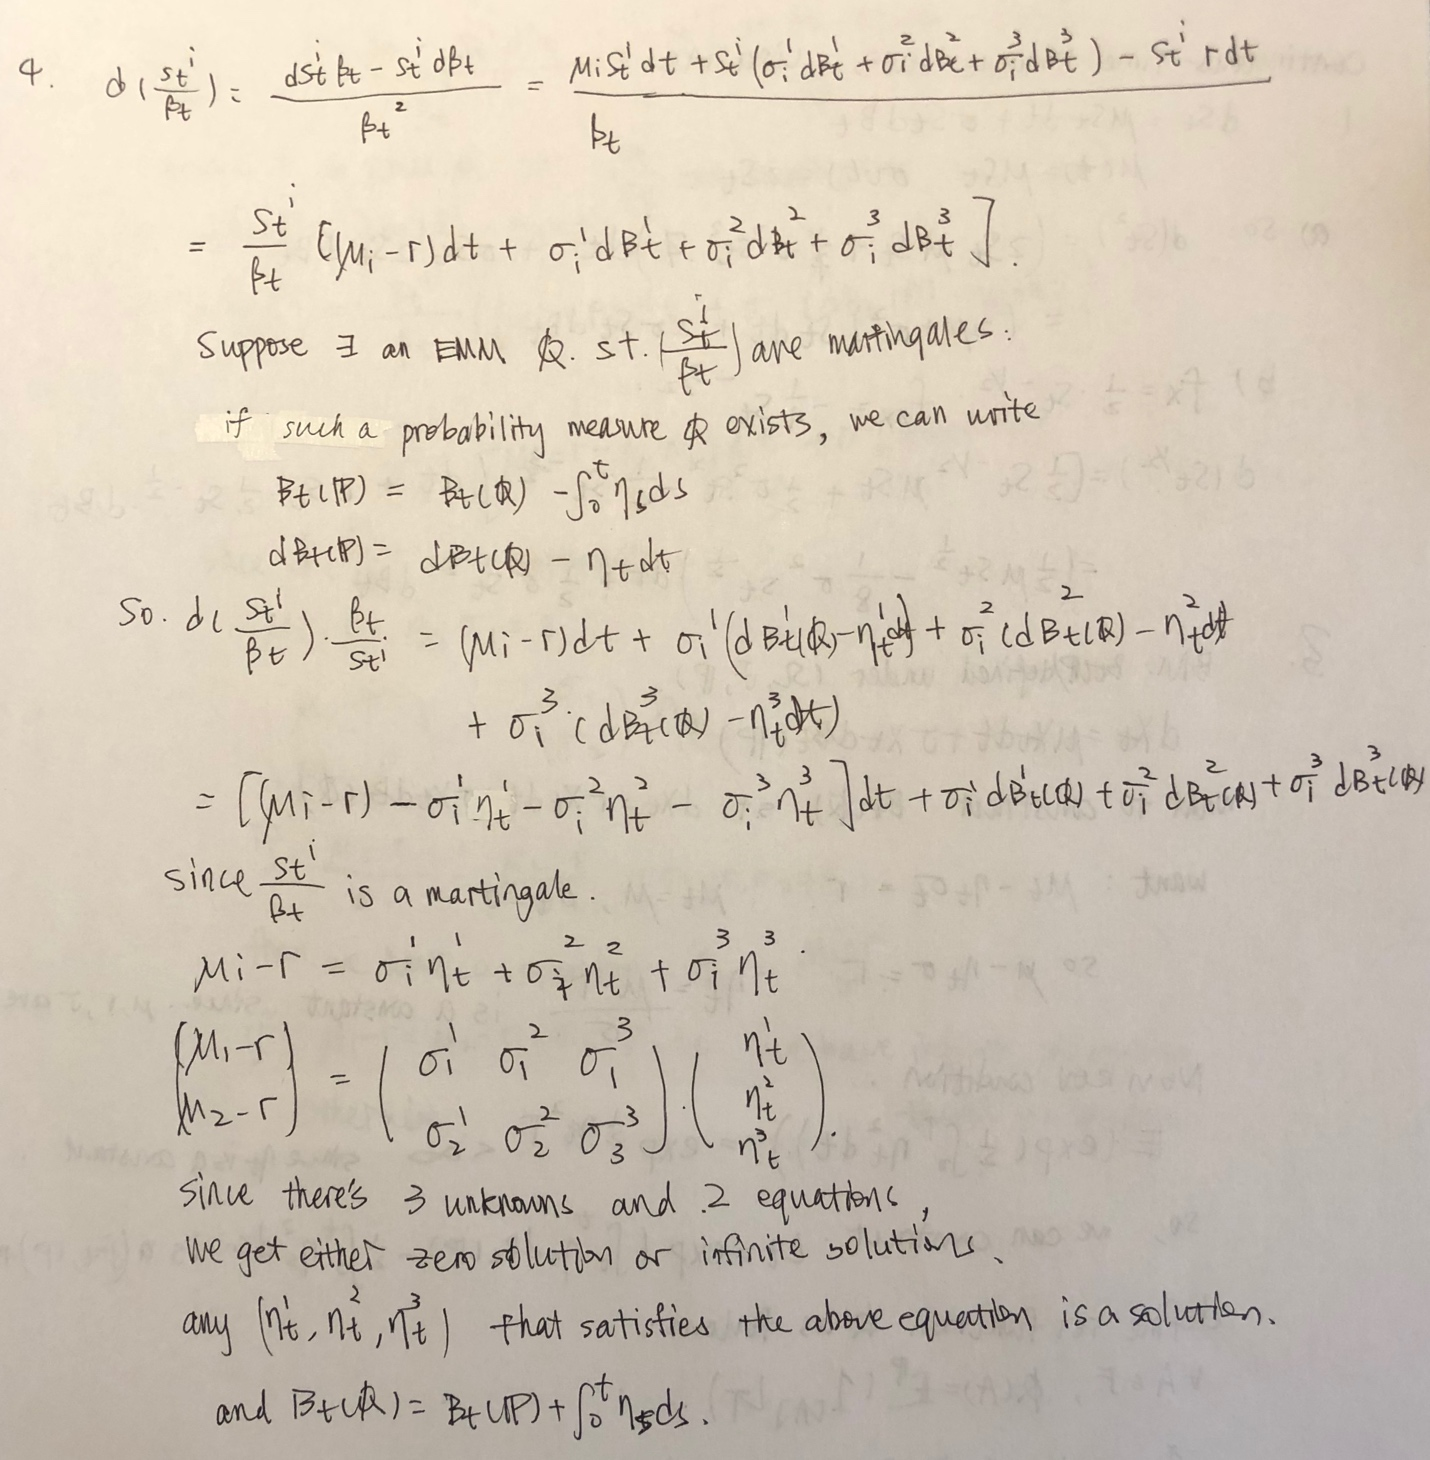 4. d(St^i/βt) = (dSt^i βt - St^i dβt)/βt^2 = (μi St^i dt + St^i (σi^1 dBt^1 + σi^2 dBt^2 + σi^3 dBt^3) - St^i r dt)/βt
= St^i/βt [(μi - r)dt + σi^1 dBt^1 + σi^2 dBt^2 + σi^3 dBt^3].
Suppose ∃ an EMM Q. st. (St^i/βt) are martingales.
if such a probability measure Q exists, we can write
Bt(P) = Bt(Q) - ∫0^t ηs ds
dBt(P) = dBt(Q) - ηt dt
So. d(St^i/βt)·βt/St^i = (μi - r)dt + σi^1 (dBt^1(Q) - ηt^1 dt) + σi^2 (dBt^2(Q) - ηt^2 dt
+ σi^3·(dBt^3(Q) - ηt^3 dt)
= [(μi - r) - σi^1 ηt^1 - σi^2 ηt^2 - σi^3 ηt^3]dt + σi^1 dBt^1(Q) + σi^2 dBt^2(Q) + σi^3 dBt^3(Q)
since St^i/βt is a martingale.
μi - r = σi^1 ηt^1 + σi^2 ηt^2 + σi^3 ηt^3.
(μ1 - r
μ2 - r) = (σ1^1 σ1^2 σ1^3
σ2^1 σ2^2 σ3^3)·(ηt^1
ηt^2
ηt^3).
since there's 3 unknowns and 2 equations,
we get either zero solution or infinite solutions.
any (ηt^1, ηt^2, ηt^3) that satisfies the above equation is a solution.
and Bt(Q) = Bt(P) + ∫0^t ηs ds.